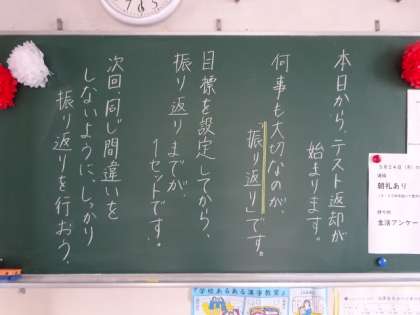 本日から、テスト返却が
始まります。
何事も大切なのが、
「振り返り」です。
目標を設定してから、
振り返りまでが、
1セットです。
次回、同じ間違いを
しないように、しっかり
振り返りを行おう。
5月24日
朝礼あり
生活アンケー
『学校あるある漢字教室』